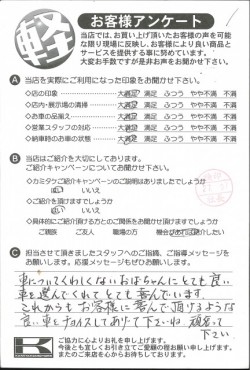 軽
お客様アンケート
当店では、お買い上げ頂いたお客様の声を可能
な限り現場に反映し、お客様により良い商品と
サービスを提供する事に努めています。
大変お手数ですが是非お声をお聞かせ下さい。
A 当店を実際にご利用になった印象をお聞かせ下さい。
◇店の印象 大満足 満足 ふつう やや不満 不満
◇店内・展示場の清掃 大満足 満足 ふつう やや不満 不満
◇お車の品揃え 大満足 満足 ふつう やや不満 不満
◇営業スタッフの対応 大満足 満足 ふつう やや不満 不満
◇納車時のお車の状態 大満足 満足 ふつう やや不満 不満
B 当店はご紹介を大切にしております。
ご紹介キャンペーンについてお聞かせ下さい。
◇カミタケご紹介キャンペーンのご説明はありましたでしょうか
はい いいえ
◇ご紹介を頂けますでしょうか
はい いいえ
◇具体的にご紹介頂ける方とのご関係をお聞かせ頂けますか
ご親戚 ご友人 職場の方 機会があれば紹介したい
C 担当させて頂きましたスタッフへのご指摘、ご指導メッセージを
お願いします。応援メッセージもぜひお願いします。
車についてくわしくないおばちゃんにとても良い
車を選んでくれてとても喜んでいます。
これからもお客様に喜んで頂けるような
良い車をチョイスしてあげて下さいね 頑張って
下さい
K
ご協力に心よりお礼を申し上げます。
今後とも宜しくお引き立てご愛顧の程お願い申し上げます。
またのご来店を心からお待ちしております。